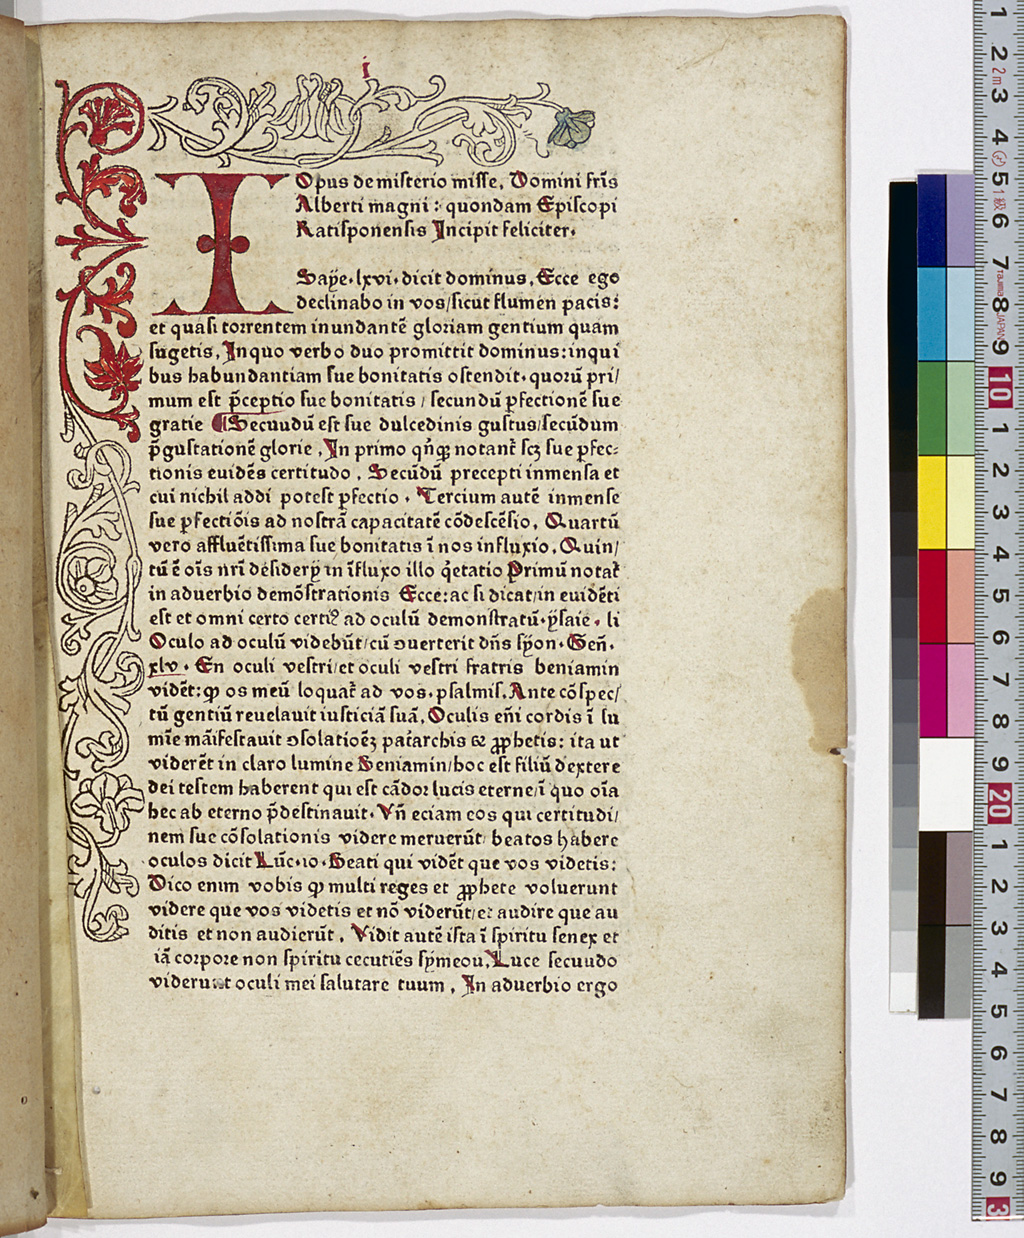 i
I
Opus de misterio misse. Domini fr̄is
Alberti magni : quondam Episcopi
Ratisponensis Incipit feliciter.
Saye. lxvi. dicit dominus. Ecce ego
declinabo in vos/sicut flumen pacis:
et quasi torrentem inundantē gloriam gentium quam
sugetis. In quo verbo duo promittit dominus: in qui
bus habundantiam sue bonitatis ostendit. quorū pri/
mum est p̄ceptio sue bonitatis / secundū ꝑfectionē sue
gratie ¶ Secuudū est sue dulcedinis gustus/secūdum
p̄gustationē glorie. In primo qn̄qꝫ notant̄ scꝫ sue ꝑfec:
tionis euidēs certitudo. Secūdū precepti inmensa et
cui nichil addi potest ꝑfectio. Tercium autē inmense
sue ꝑfectiōis ad nostrā capacitatē cōdescēsio. Quartū
vero affluētissima sue bonitatis ī nos influxio. Quin/
tū ē oīs nr̄i desidery̆ in īfluxo illo q̇etatio Primū notat̄
in aduerbio demōstrationis Ecce: ac si dicat/in euidēti
est et omni certo certiꝰ ad oculū demonstratū. ysaie. li
Oculo ad oculū videbūt/cū ꝯuerterit dn̄s syon. Gen̄.
xlv. En oculi vestri/et oculi vestri fratris beniamin
vidēt: ꝙ os meū loquat̄ ad vos. psalmis. Ante cōspec/
tū gentiū reuelauit iusticiā suā. Oculis eni̅ cordis ī lu
mīe māifestauit ꝯsolatioēꝫ pat̄archis ⁊ ꝓphetis: ita ut
viderēt in claro lumine Beniamin/hoc est filiū dextere
dei testem haberent qui est cādor lucis eterne/ī quo oīa
hec ab eterno p̄destinauit. Vn̄ eciam eos qui certitudi/
nem sue cōsolationis videre meruerūt/ beatos habere
oculos dicit Luc̄. 10. Beati qui vidēt que vos videtis:
Dico enim vobis ꝙ multi reges et ꝓphete voluerunt
videre que vos videtis et nō viderūt/et audire que au
ditis et non audierūt. Vidit autē ista ī spiritu senex et
iā corpore non spiritu cecutiēs symeou, Luce secuudo
viderunt oculi mei salutare tuum. In aduerbio ergo
1
2
2m
3
4
5
1級
6
7
TAJIMA
JAPAN
8
9
10
1
2
3
4
5
6
7
8
9
20
1
2
3
4
5
6
7
8
9
3